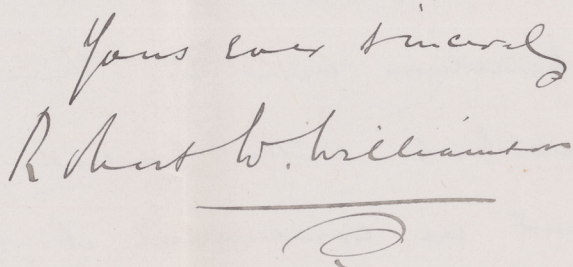 Yours ever sincerely
Robert W. Williamson